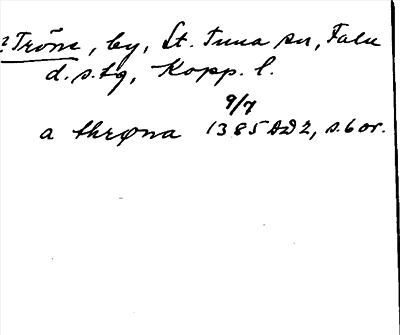 ? Tröne, by, St. Tuna sn, Falu
d.s.tg, Kopp. l.
9/7
a thrøna 1385 DD 2, s. 6 or.